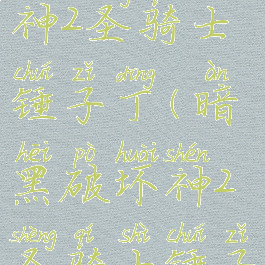 神2圣骑士
chuí zǐ dīng àn
锤子丁(暗
hēi pò huài shén
黑破坏神2
shèng qí shì chuí zǐ
圣骑士锤子